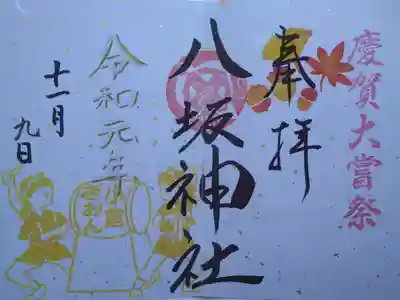 慶賀大嘗祭
奉拝
八坂神社
令和元年
十一月
九日
小倉
ぎおん